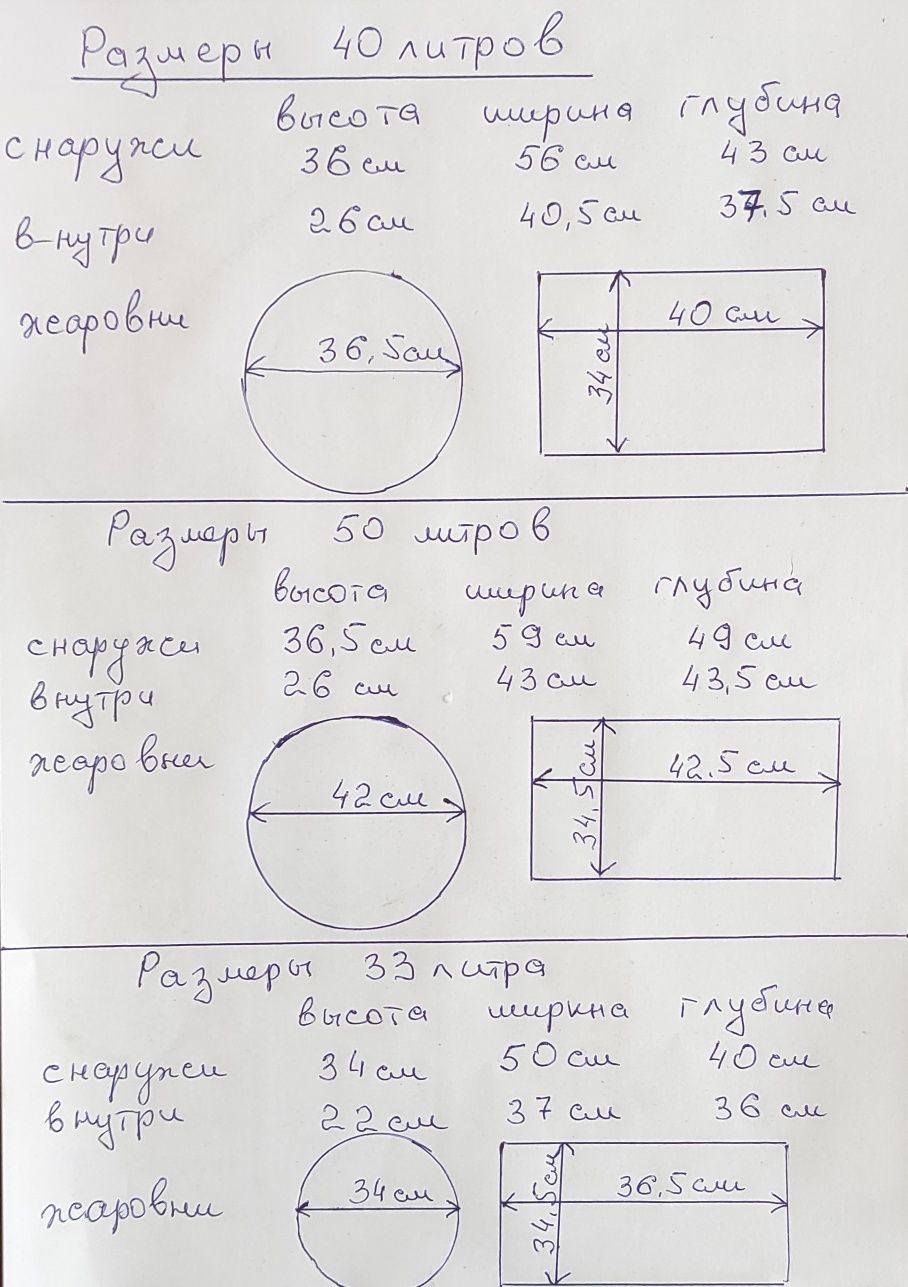 Размеры 40 литров
высота ширина глубина
снаружи 36 см 56 см 43 см
в-нутри 26 см 40,5 см 37.5 см
жаровни
36,5 см
40 см
34 см
Размеры 50 литров
высота ширина глубина
снаружи 36,5 см 59 см 49 см
внутри 26 см 43 см 43,5 см
жаровни
42 см
42.5 см
34,5 см
Размеры 33 литра
высота ширина глубина
снаружи 34 см 50 см 40 см
внутри 22 см 37 см 36 см
жаровни
34 см
36,5 см
34,5 см